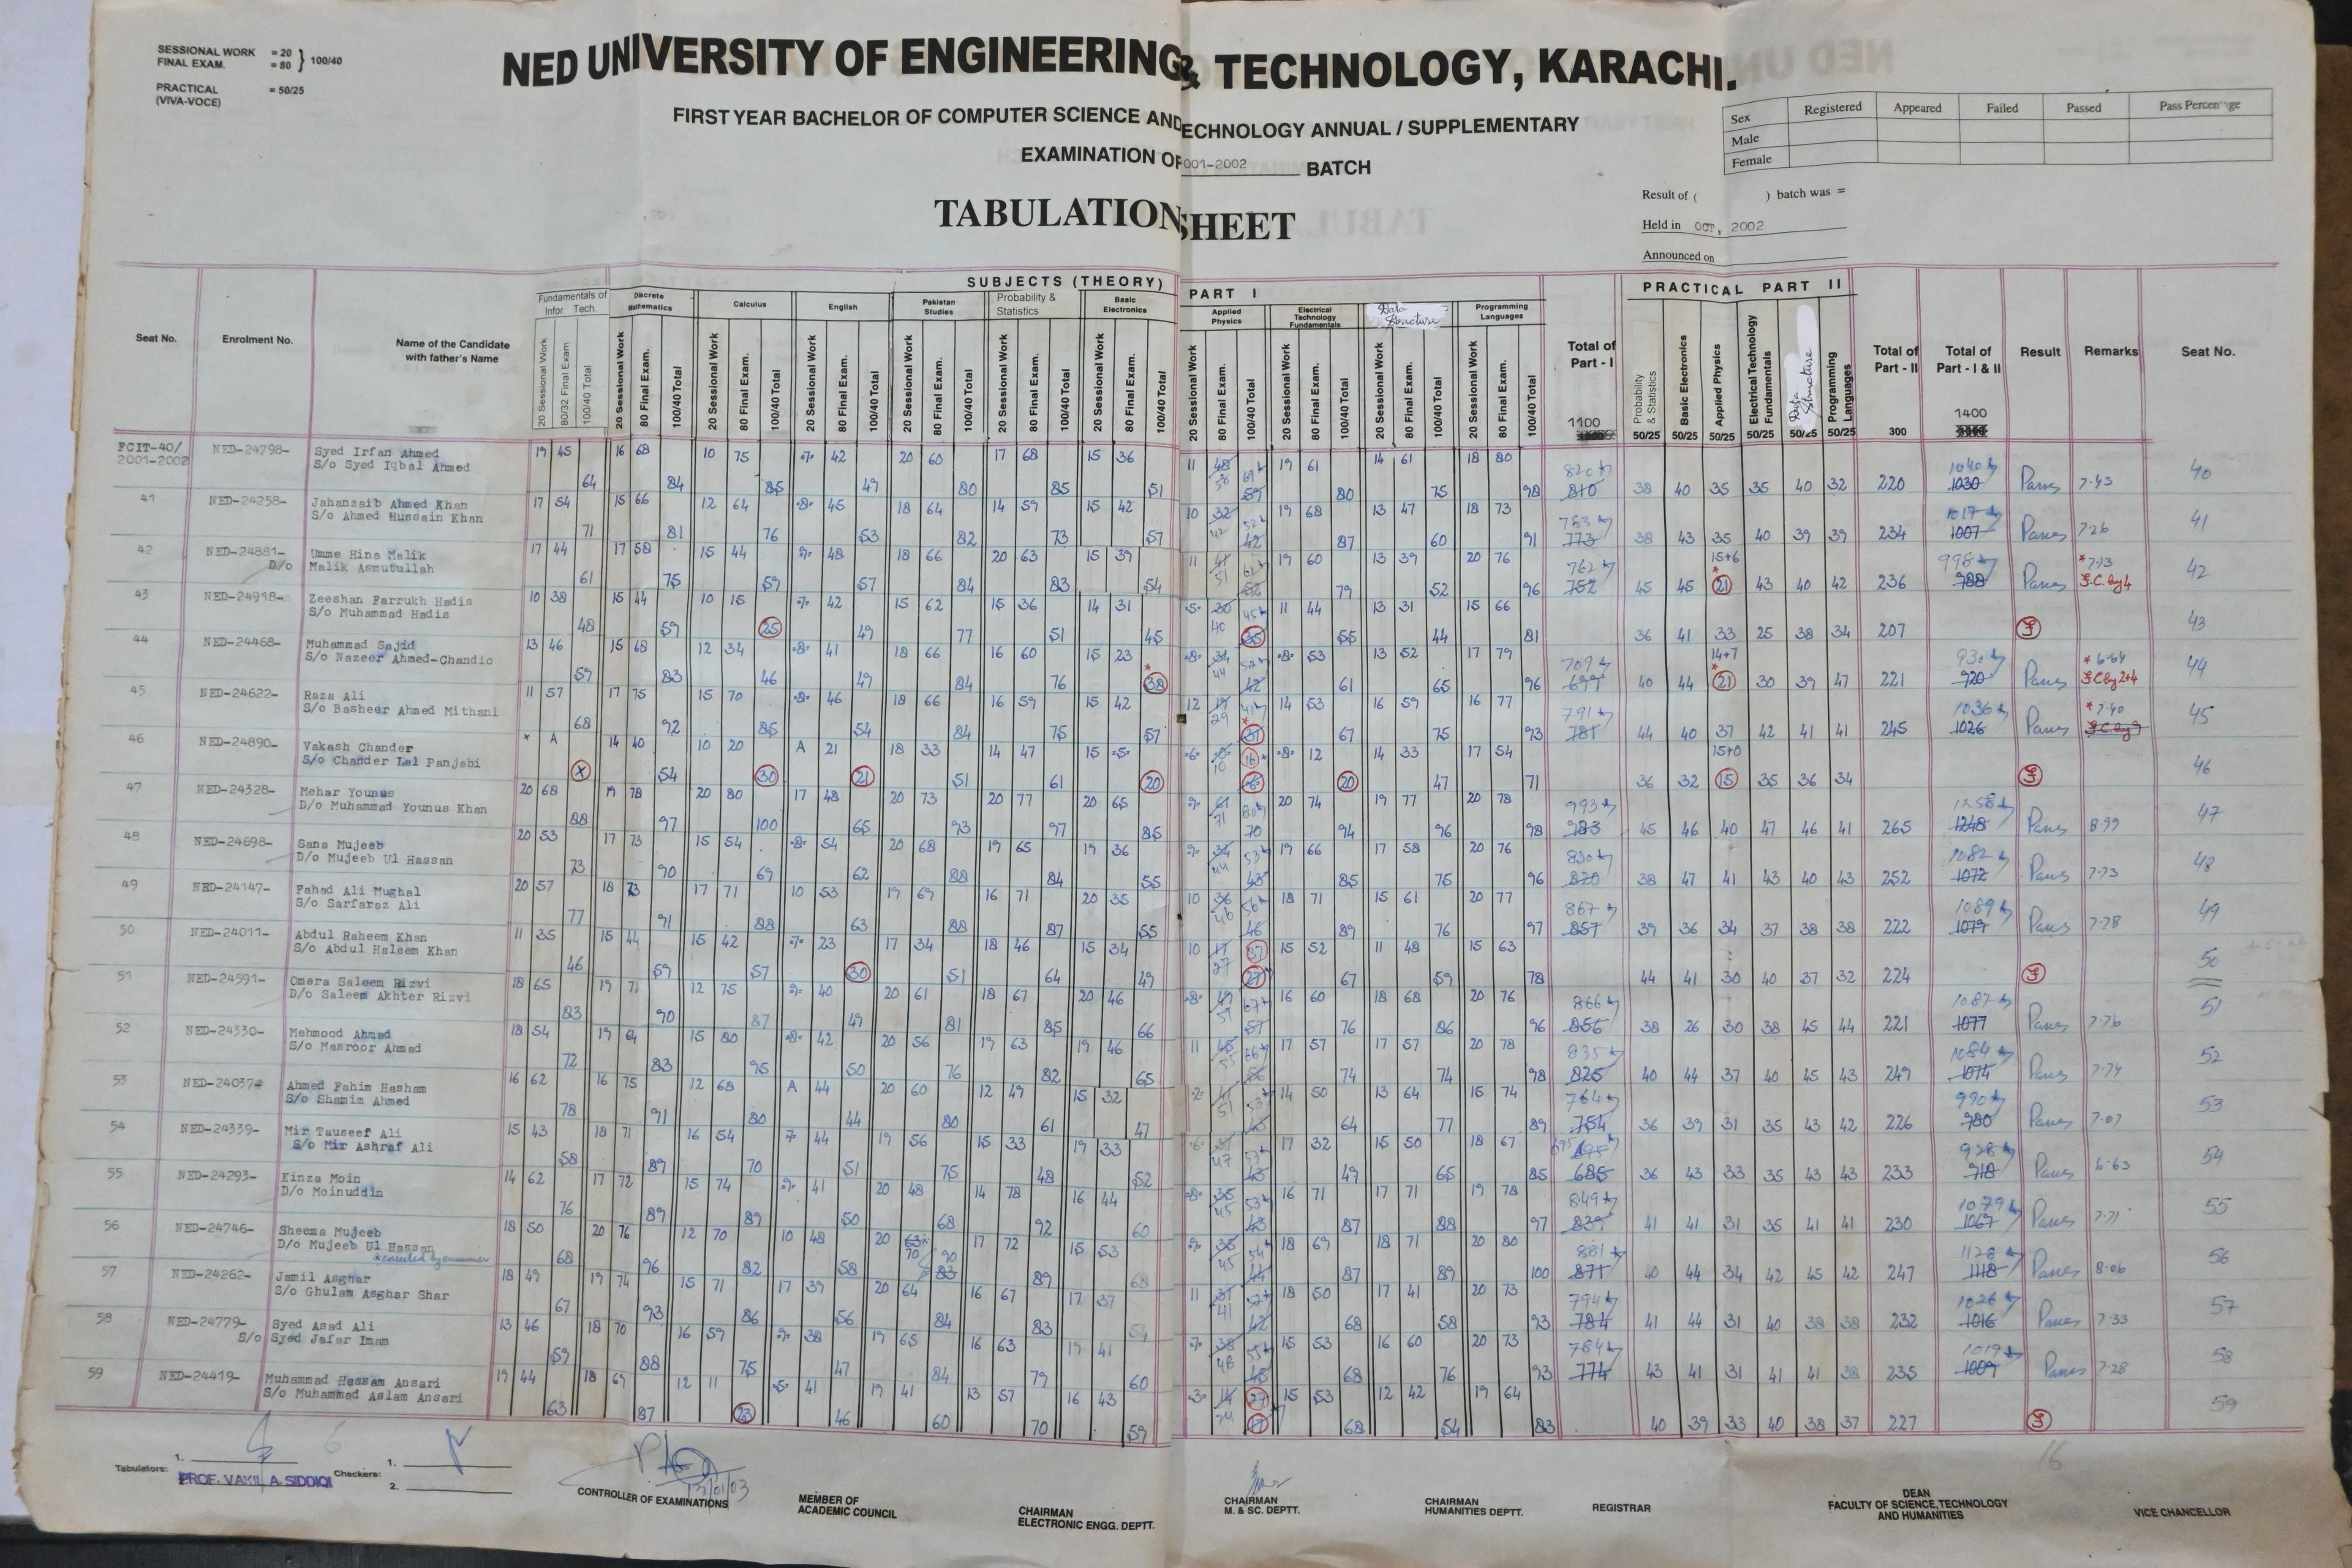 SESSIONAL WORK = 20
FINAL EXAM. = 80 } 100/40
PRACTICAL = 50/25
(VIVA-VOCE)
NED UNIVERSITY OF ENGINEERING & TECHNOLOGY, KARACHI.
FIRST YEAR BACHELOR OF COMPUTER SCIENCE AND ECHNOLOGY ANNUAL / SUPPLEMENTARY
EXAMINATION OF 001-2002 BATCH
TABULATION SHEET
Sex Registered Appeared Failed Passed Pass Percentage
Male
Female
Result of ( ) batch was =
Held in OCT, 2002
Announced on
SUBJECTS (THEORY) PART I PRACTICAL PART II
Seat No. Enrolment No. Name of the Candidate with father's Name
Fundamentals of Infor. Tech. Discrete Mathematics Calculus English Pakistan Studies Probability & Statistics Basic Electronics Applied Physics Electrical Technology Fundamentals Data Structure Programming Languages
20 Sessional Work 80/32 Final Exam 100/40 Total
20 Sessional Work 80 Final Exam. 100/40 Total
Total of Part - I 1100
Probability & Statistics 50/25 Basic Electronics 50/25 Applied Physics 50/25 Electrical Technology Fundamentals 50/25 Data Structure 50/25 Programming Languages 50/25
Total of Part - II 300 Total of Part - I & II 1400 Result Remarks Seat No.
FCIT-40/ 2001-2002 NED-24798- Syed Irfan Ahmed
S/o Syed Iqbal Ahmed
19 45 64 16 68 84 10 75 85 -7- 42 49 20 60 80 17 68 85 15 36 51 11 48 58 69 59 19 61 80 14 61 75 18 80 98 820 810 38 40 35 35 40 32 220 1040 1030 Passes 7.43 40
41 NED-24258- Jahanzaib Ahmed Khan
S/o Ahmed Hussain Khan
17 54 71 15 66 81 12 64 76 -8- 45 53 18 64 82 14 59 73 15 42 57 10 32 42 52 42 19 68 87 13 47 60 18 73 91 783 773 38 43 35 40 39 39 234 1017 1007 Passes 7.26 41
42 NED-24881- Umme Hina Malik
D/o Malik Asmutullah
17 44 61 17 58 75 15 44 59 -9- 48 57 18 66 84 20 63 83 15 39 54 11 41 51 62 52 19 60 79 13 39 52 20 76 96 762 752 45 45 15+6 21 43 40 42 236 998 988 Passes *7.13 G.C. by 4 42
43 NED-24918- Zeeshan Farrukh Hadis
S/o Muhammad Hadis
10 38 48 15 44 59 10 15 25 -7- 42 49 15 62 77 15 36 51 14 31 45 -5- 30 40 45 35 11 44 55 13 31 44 15 66 81 36 41 33 25 38 34 207 43
44 NED-24468- Muhammad Sajid
S/o Nazeer Ahmed-Chandio
13 46 59 15 68 83 12 34 46 -8- 41 49 18 66 84 16 60 76 15 23 38 -8- 34 44 52 42 -8- 53 61 13 52 65 17 79 96 709 699 40 44 14+7 21 30 39 47 221 930 920 Passes *6.64 G.C by 2+4 44
45 NED-24622- Raza Ali
S/o Basheer Ahmed Mithani
11 57 68 17 75 92 15 70 85 -8- 46 54 18 66 84 16 59 75 15 42 57 12 19 29 41 31 14 53 67 16 59 75 16 77 93 791 781 44 40 37 42 41 41 245 1036 1026 Passes *7.40 45
46 NED-24890- Vakash Chander
S/o Chander Lal Panjabi
x A x 14 40 54 10 20 30 A 21 21 18 33 51 14 47 61 15 -5- 20 -6- 10 16 -8- 12 20 14 33 47 17 54 71 36 32 15+0 15 35 36 34 46
47 NED-24328- Mehar Younus
D/o Muhammad Younus Khan
20 68 88 19 78 97 20 80 100 17 48 65 20 73 93 20 77 97 20 65 85 -9- 61 71 80 70 20 74 94 19 77 96 20 78 98 993 983 45 46 40 47 46 41 265 1258 1248 Passes 8.99 47
48 NED-24698- Sana Mujeeb
D/o Mujeeb Ul Hassan
20 53 73 17 73 90 15 54 69 -8- 54 62 20 68 88 19 65 84 19 36 55 -9- 34 44 53 43 19 66 85 17 58 75 20 76 96 830 820 38 47 41 43 40 43 252 1082 1072 Passes 7.73 48
49 NED-24147- Fahad Ali Mughal
S/o Sarfaraz Ali
20 57 77 18 73 91 17 71 88 10 53 63 19 69 88 16 71 87 20 35 55 10 36 46 56 46 18 71 89 15 61 76 20 77 97 867 857 39 36 34 37 38 38 222 1089 1079 Passes 7.78 49
50 NED-24011- Abdul Raheem Khan
S/o Abdul Haleem Khan
11 35 46 15 44 59 15 42 57 -7- 23 30 17 34 51 18 46 64 15 34 49 10 17 27 37 27 15 52 67 11 48 59 15 63 78 44 41 30 40 37 32 224 50
51 NED-24591- Omera Saleem Rizvi
D/o Saleem Akhter Rizvi
18 65 83 19 71 90 12 75 87 -9- 40 49 20 61 81 18 67 85 20 46 66 -8- 49 59 67 57 16 60 76 18 68 86 20 76 96 866 856 38 26 30 38 45 44 221 1087 1077 Passes 7.76 51
52 NED-24330- Mehmood Ahmad
S/o Masroor Ahmad
18 54 72 19 64 83 15 80 95 -8- 42 50 20 56 76 19 63 82 19 46 65 11 45 55 66 56 17 57 74 17 57 74 20 78 98 835 825 40 44 37 40 45 43 249 1084 1074 Passes 7.74 52
53 NED-24037- Ahmed Fahim Hasham
S/o Shamim Ahmed
16 62 78 16 75 91 12 68 80 A 44 44 20 60 80 12 49 61 15 32 47 -2- 41 51 53 43 14 50 64 13 64 77 15 74 89 764 754 36 39 31 35 43 42 226 990 980 Passes 7.07 53
54 NED-24339- Mir Tauseef Ali
S/o Mir Ashraf Ali
15 43 58 18 71 89 16 54 70 7 44 51 19 56 75 15 33 48 19 33 52 -6- 37 47 53 43 17 32 49 15 50 65 18 67 85 695 685 36 43 33 35 43 43 233 928 918 Passes 6.63 54
55 NED-24293- Kinza Moin
D/o Moinuddin
14 62 76 17 72 89 15 74 89 -9- 41 50 20 48 68 14 78 92 16 44 60 -8- 35 45 53 43 16 71 87 17 71 88 19 78 97 849 839 41 41 31 35 41 41 230 1079 1067 Passes 7.71 55
56 NED-24746- Sheema Mujeeb
D/o Mujeeb Ul Hassan
*corrected by examiner
18 50 68 20 76 96 12 70 82 10 48 58 20 63 70 90 83 17 72 89 15 53 68 -9- 35 45 54 44 18 69 87 18 71 89 20 80 100 881 871 40 44 34 42 45 42 247 1128 1118 Passes 8.06 56
57 NED-24262- Jamil Asghar
S/o Ghulam Asghar Shar
18 49 67 19 74 93 15 71 86 17 39 56 20 64 84 16 67 83 17 37 54 11 31 41 52 42 18 50 68 17 41 58 20 73 93 794 784 41 44 31 40 38 38 232 1026 1016 Passes 7.33 57
58 NED-24779- Syed Asad Ali
S/o Syed Jafar Imam
13 46 59 18 70 88 16 59 75 -9- 38 47 19 65 84 16 63 79 19 41 60 -7- 38 48 55 45 15 53 68 16 60 76 20 73 93 784 774 43 41 31 41 41 38 235 1019 1009 Passes 7.28 58
59 NED-24419- Muhammad Hessam Ansari
S/o Muhammad Aslam Ansari
19 44 63 18 69 87 12 11 23 -5- 41 46 19 41 60 13 57 70 16 43 59 -3- 14 24 27 17 15 53 68 12 42 54 19 64 83 40 39 33 40 38 37 227 59
16
Tabulators: 1. PROF. VAKIL A. SIDDIQI
Checkers: 1. 2.
13/01/03
CONTROLLER OF EXAMINATIONS
MEMBER OF ACADEMIC COUNCIL
CHAIRMAN ELECTRONIC ENGG. DEPTT.
CHAIRMAN M. & SC. DEPTT.
CHAIRMAN HUMANITIES DEPTT.
REGISTRAR
DEAN FACULTY OF SCIENCE, TECHNOLOGY AND HUMANITIES
VICE CHANCELLOR